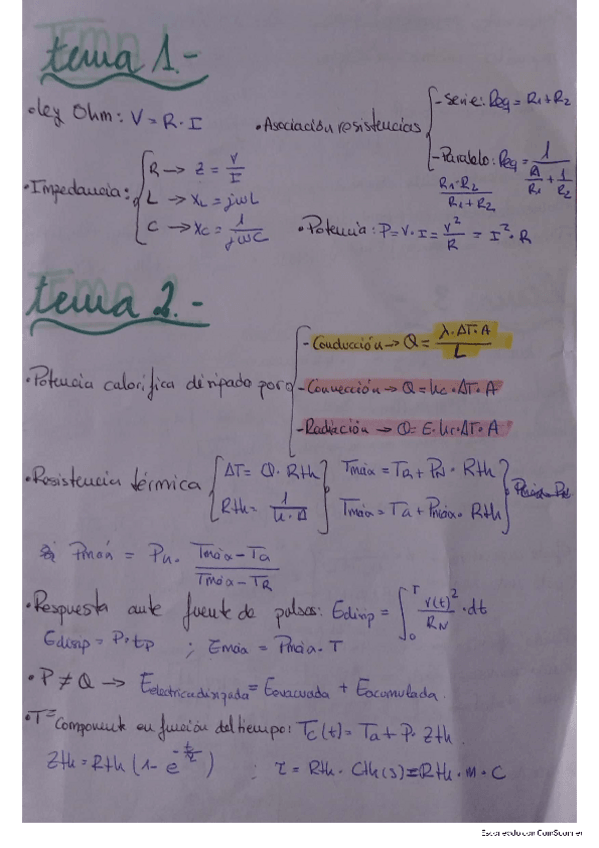 tema 1.-
• Ley Ohm: V = R · I
• Asociación resistencias
- Serie: Req = R1 + R2
- Paralelo: Req = 1 / (1/R1 + 1/R2)
R1·R2 / R1 + R2
• Impedancia:
R → Z = V/I
L → XL = jωL
C → XC = 1/jωC
• Potencia: P = V · I = V²/R = I² · R
tema 2.-
• Potencia calorífica disipado por
- Conducción → Q = λ·ΔT·A / L
- Convección → Q = hc·ΔT·A
- Radiación → Q = E·hr·ΔT·A
• Resistencia térmica
ΔT = Q · Rth
Rth = 1 / h·A
Tmáx = TR + PN · Rth
Tmáx = Ta + Pmáx · Rth
Pmáx = Pn · Tmáx - Ta / Tmáx - TR
• Respuesta ante fuente de pulsos: Edisip = ∫₀ᵀ v(t)²/RN · dt
Edisip = P·tp ; Emáx = Pmáx · T
• P ≠ Q → Eeléctrica disipada = Eevacuada + Eacumulada.
• Tª componente en función del tiempo: Tc(t) = Ta + P · Zth.
Zth = Rth (1 - e^(-t/τ)) ; τ = Rth · Cth(s) = Rth · m · C
Escaneado con CamScanner